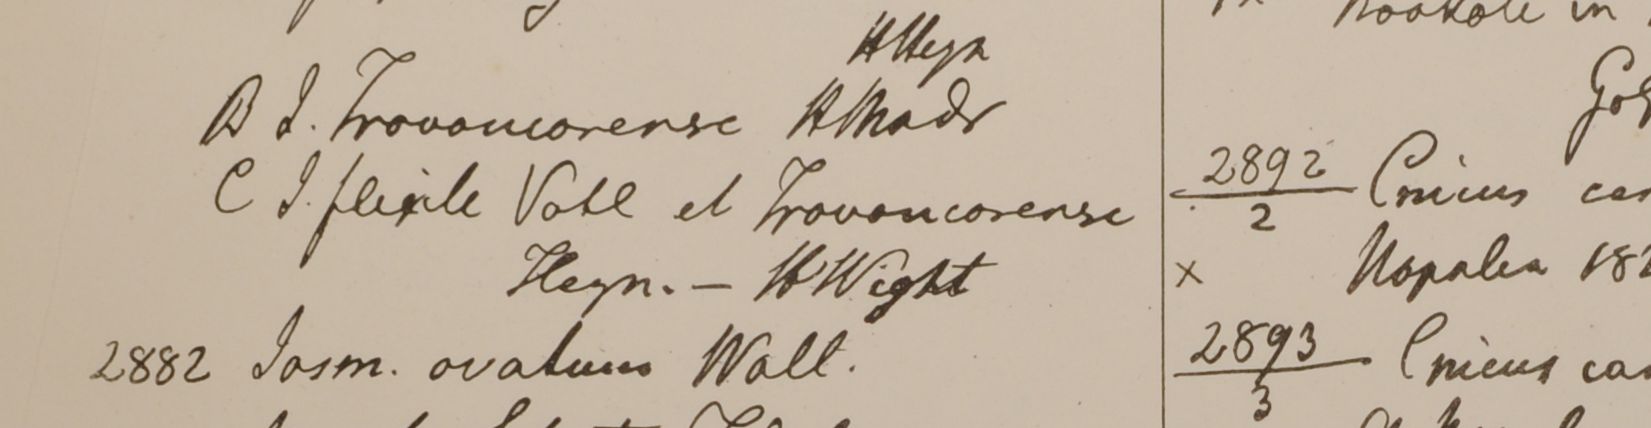 H Heyn
B J. Travancorense H Madr
C J. flexile Vahl et Travancorense
Heyn. — H Wight
2882 Jasm. ovatum Wall.
Nookote in
2892
2 Cnicus
x Nopalea 18
2893
3 Cnicus